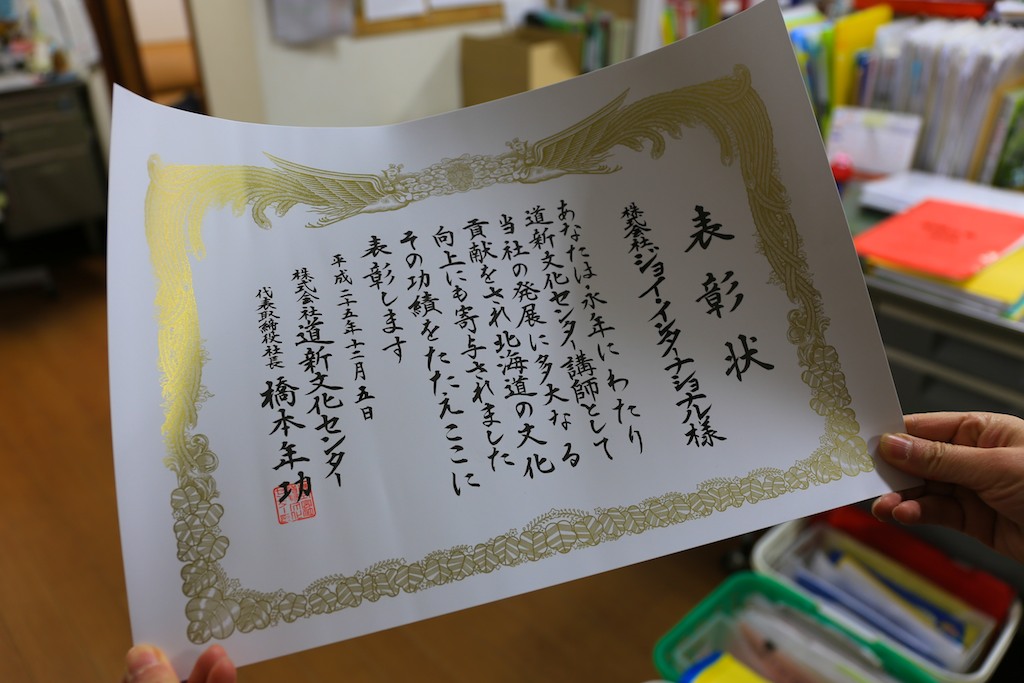 表彰状
株式会社ジョイ・インターナショナル様
あなたは永年にわたり
道新文化センター講師として
当社の発展に多大なる
貢献をされ北海道の文化
向上にも寄与されました
その功績をたたえここに
表彰します
平成二十五年十二月五日
株式会社道新文化センター
代表取締役社長 橋本年功